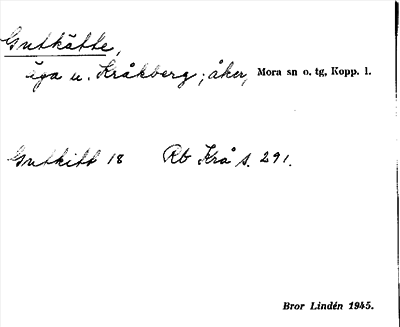 Gutkätte,
äga u. Kråkberg; åker, Mora sn o. tg, Kopp. l.
Gutkitt 18 Rb Krå s. 291.
Bror Lindén 1945.